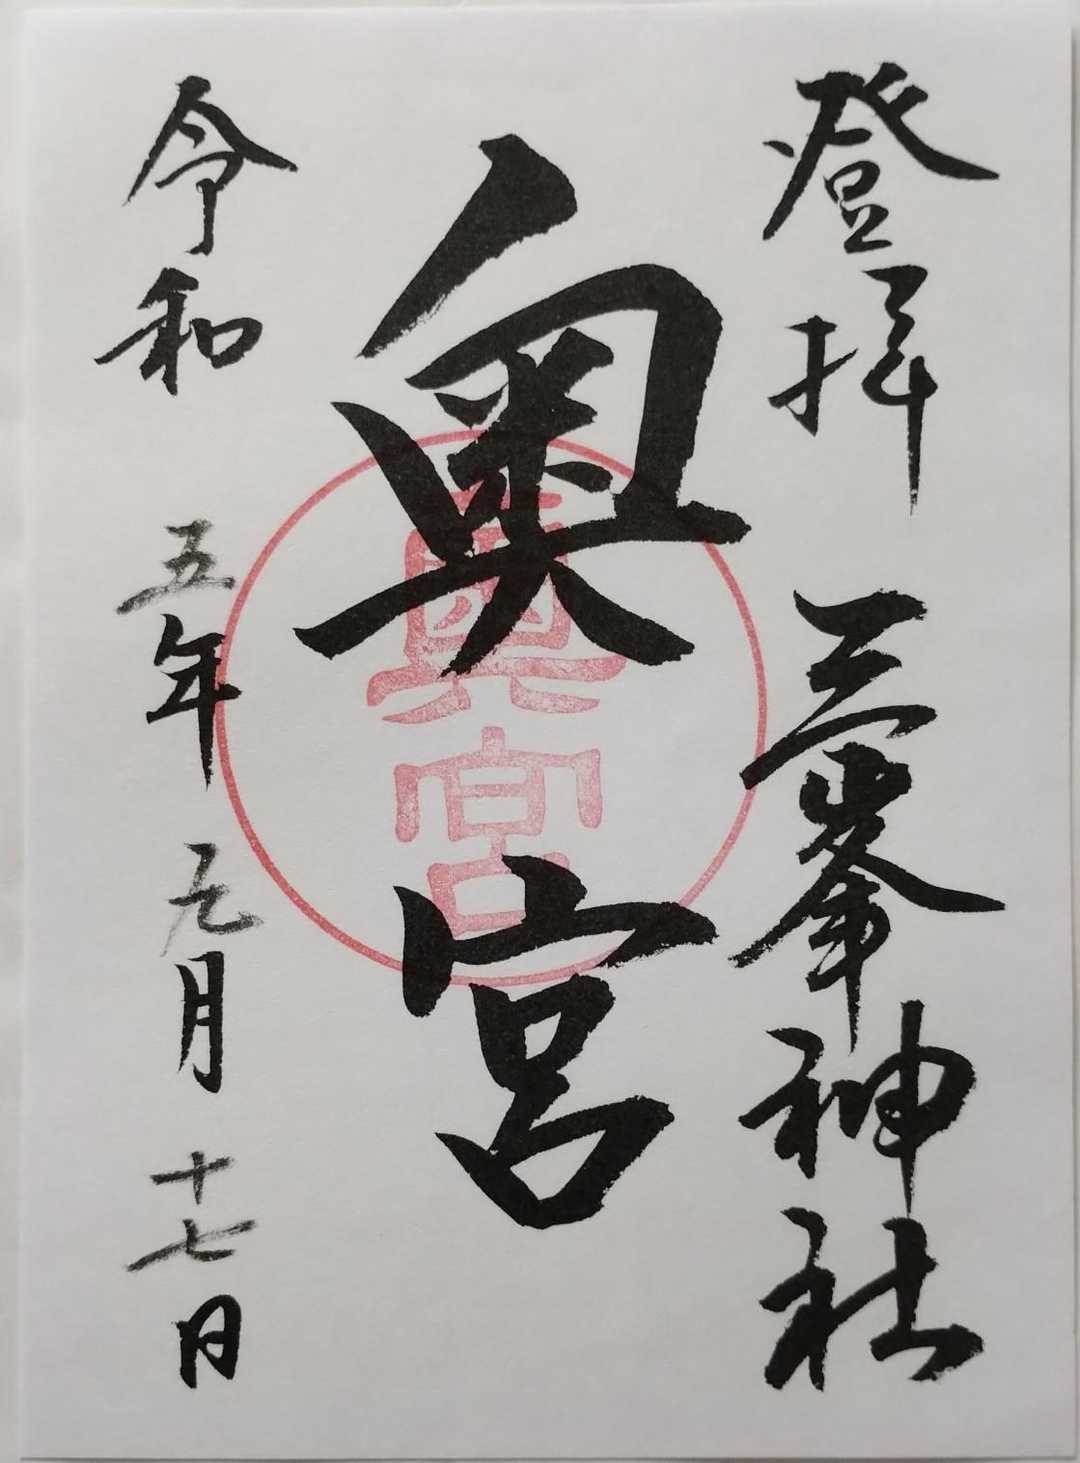 登拝 三峯神社
奥宮
奥宮
令和五年元月十七日